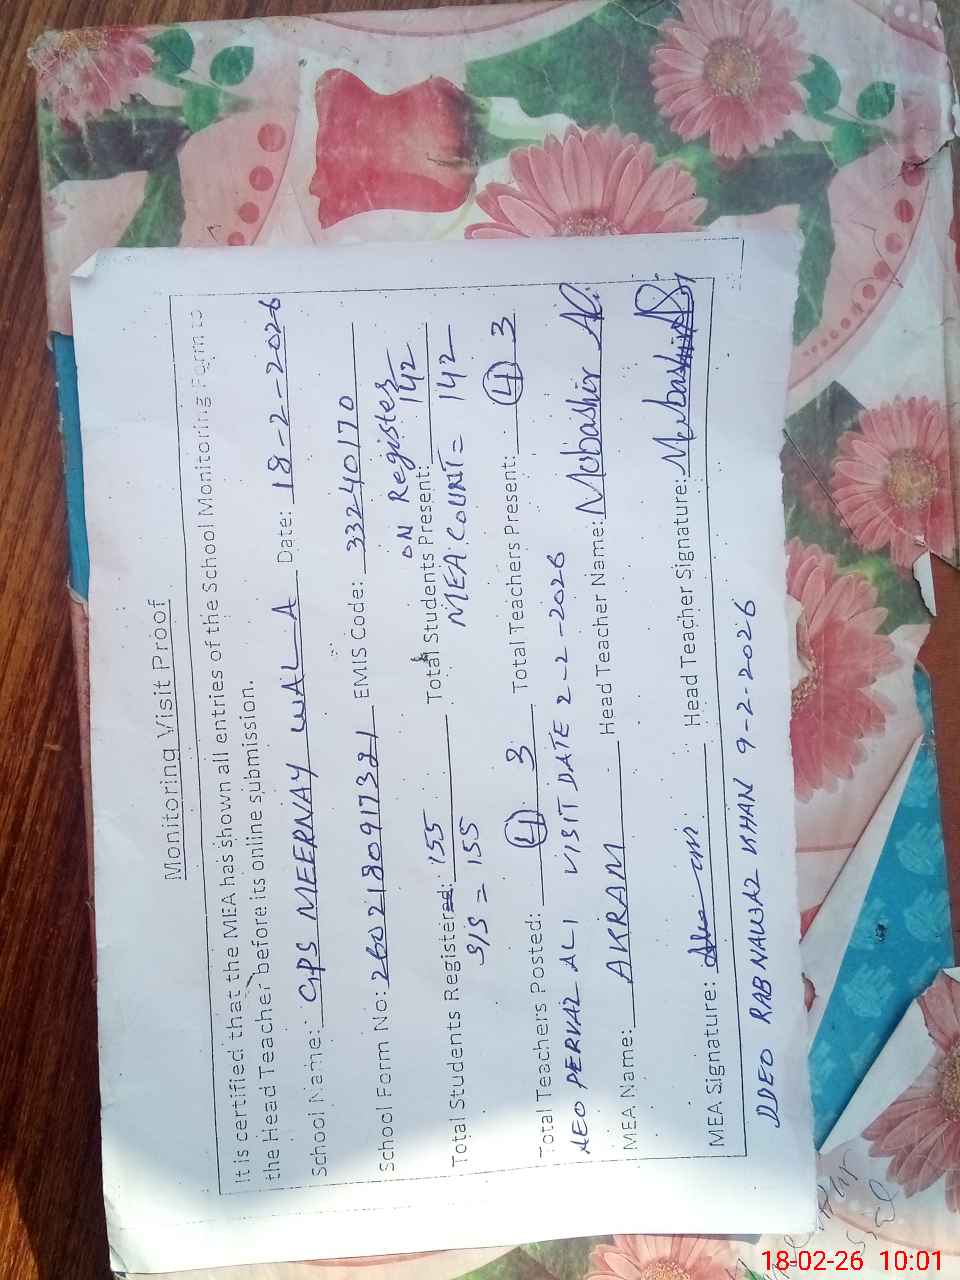 Monitoring Visit Proof
It is certified that the MEA has shown all entries of the School Monitoring Form to
the Head Teacher before its online submission.
School Name: GPS MEERNAY WALA Date: 18-2-2026
School Form No: 260218091732 1 EMIS Code: 33240170
ON Register
Total Students Registered: 155 Total Students Present: 142
S/S = 155 MEA COUNT = 142
Total Teachers Posted: 4 3 Total Teachers Present: 4 3
AEO PERVAZ ALI VISIT DATE 2-2-2026
MEA Name: AKRAM Head Teacher Name: Mobashir Ali
MEA Signature: Head Teacher Signature:
DDEO RAB NAWAZ KHAN 9-2-2026
18-02-26 10:01